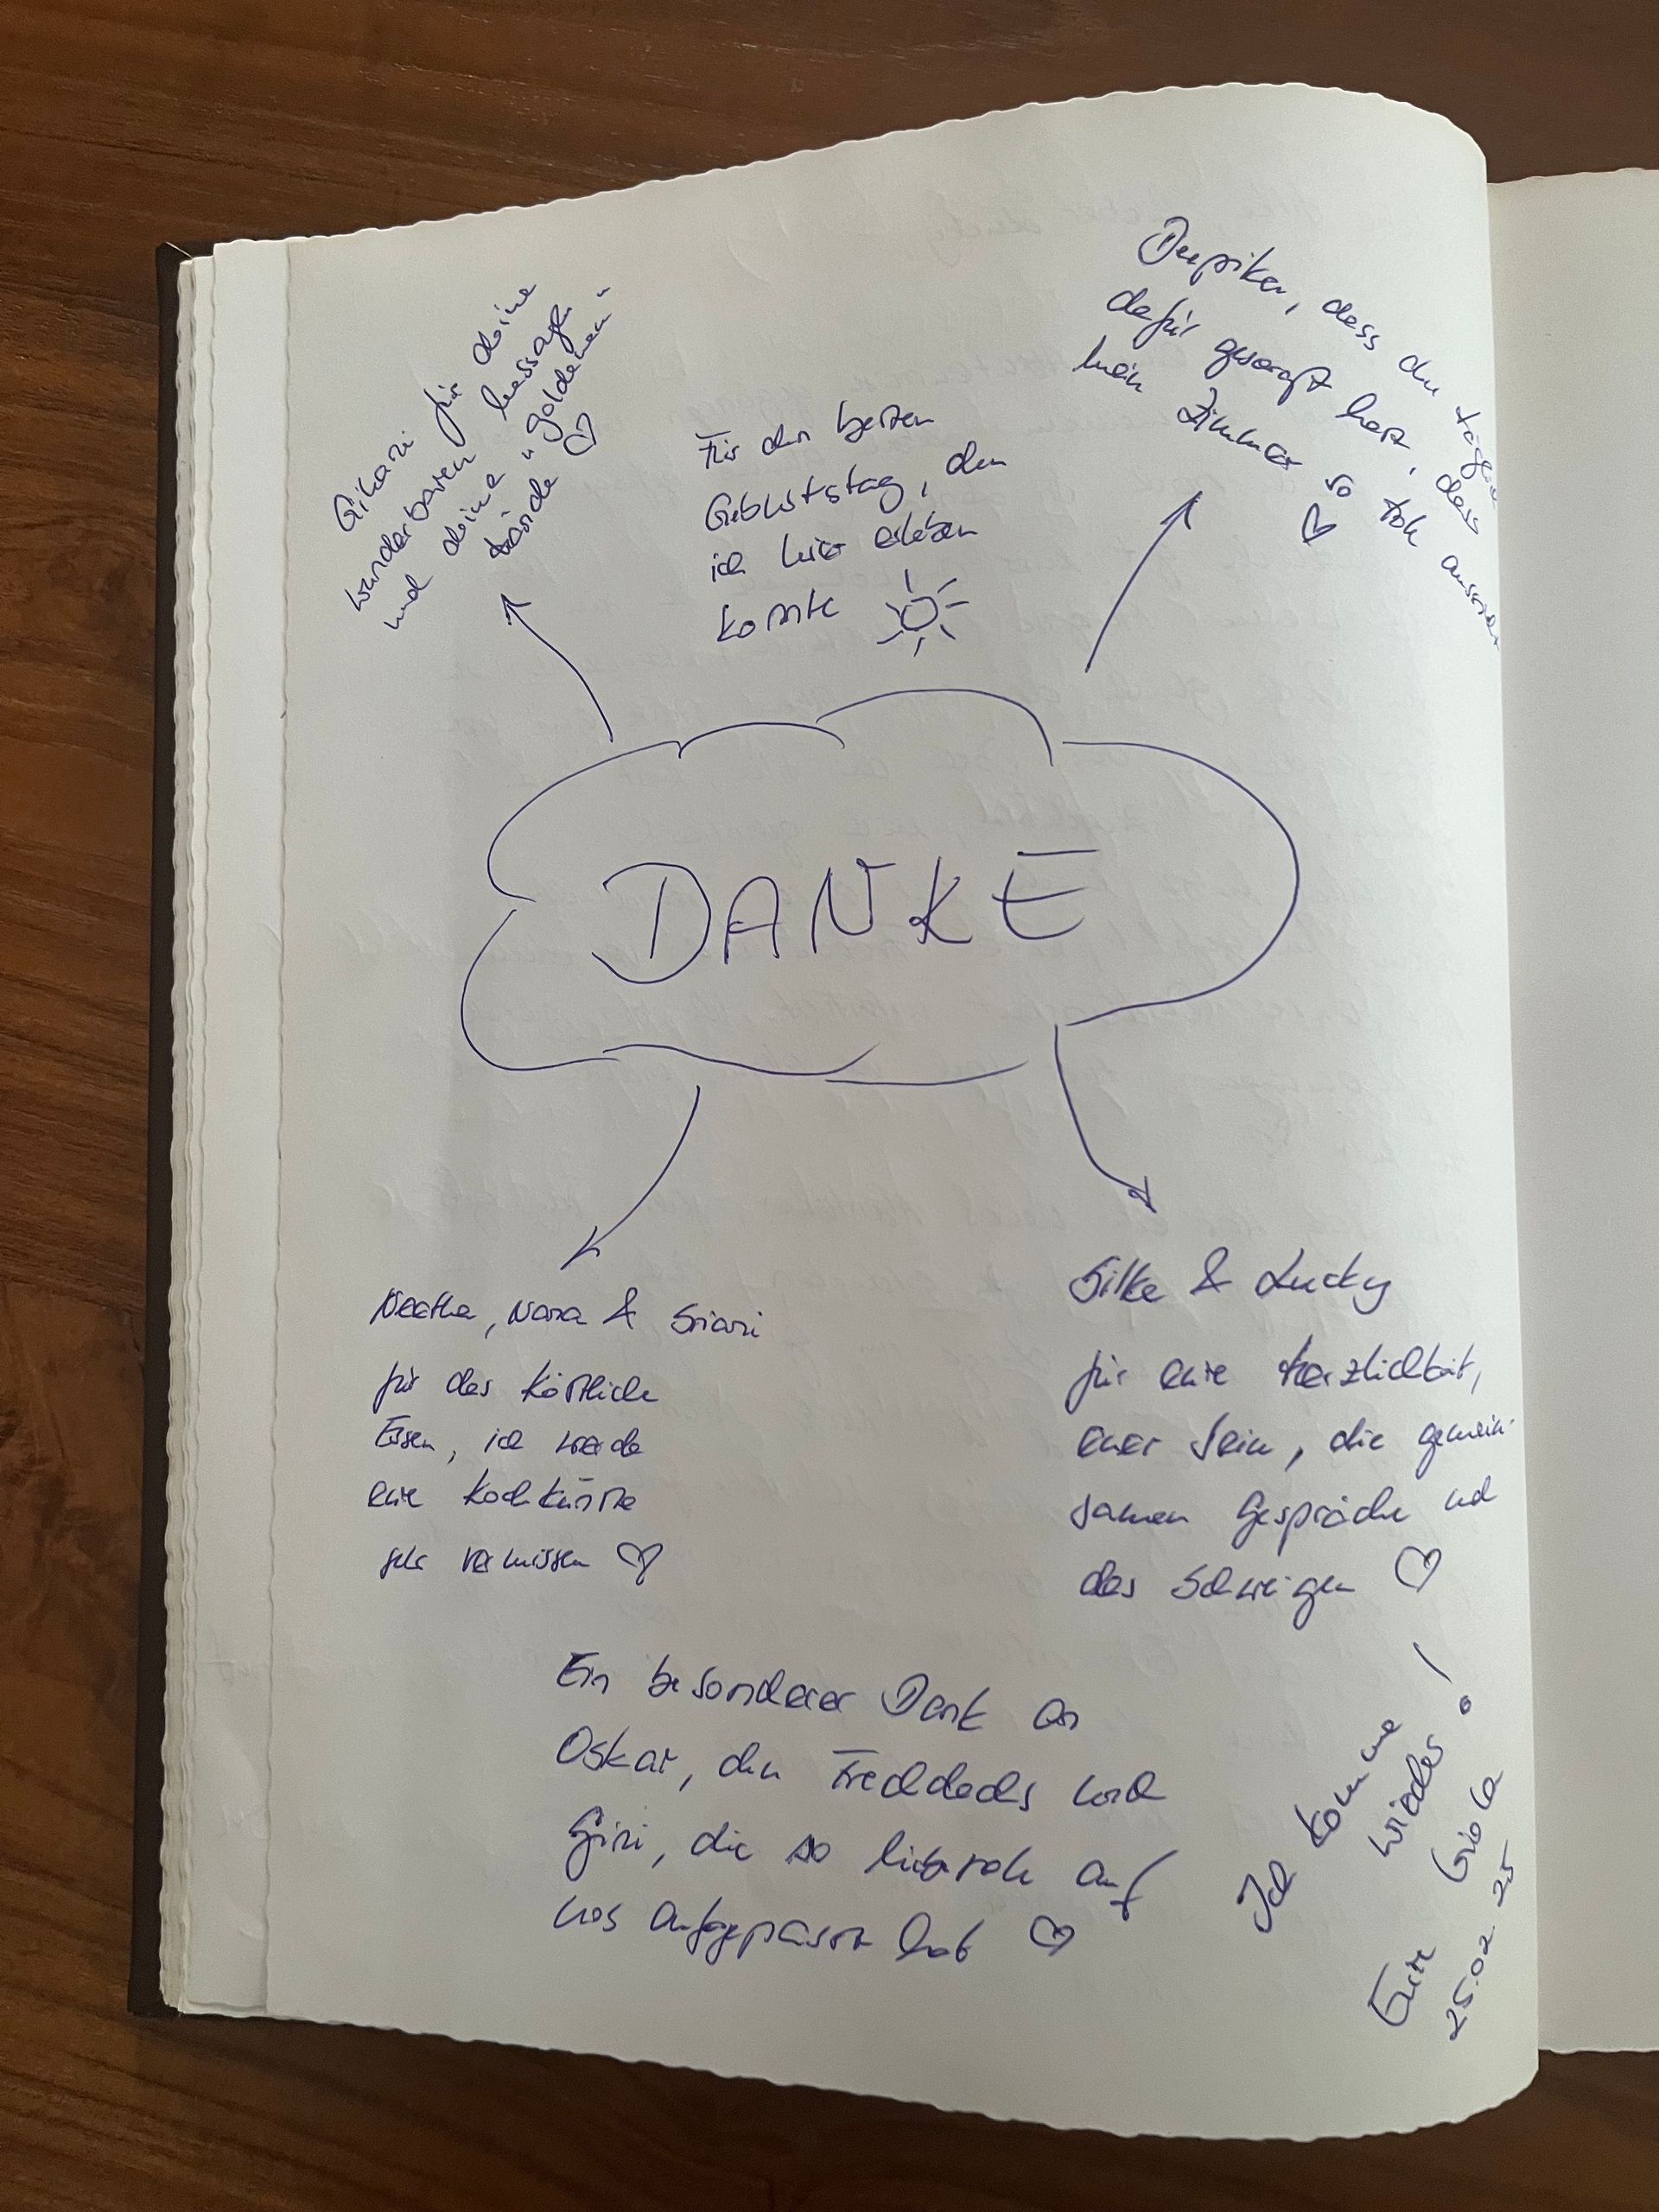 für deine
wunderbaren Massagen
und deine "goldenen"
Hände
Für den besten
Geburtstag, den
ich hier erleben
konnte
dass du
dafür gesorgt hast, dass
mein Zimmer so toll
DANKE
Nara &
für das köstliche
Essen, ich werde
eure Kochkünste
sehr vermissen
Silke & Lucky
für eure Herzlichkeit,
euer Sein, die gemein-
samen Gespräche und
das Schweigen
Ein besonderer Dank an
Oskar, den und
Giri, die so liebevoll auf
uns aufgepasst hat
Ich komme
wieder!
Eure
25.02.25